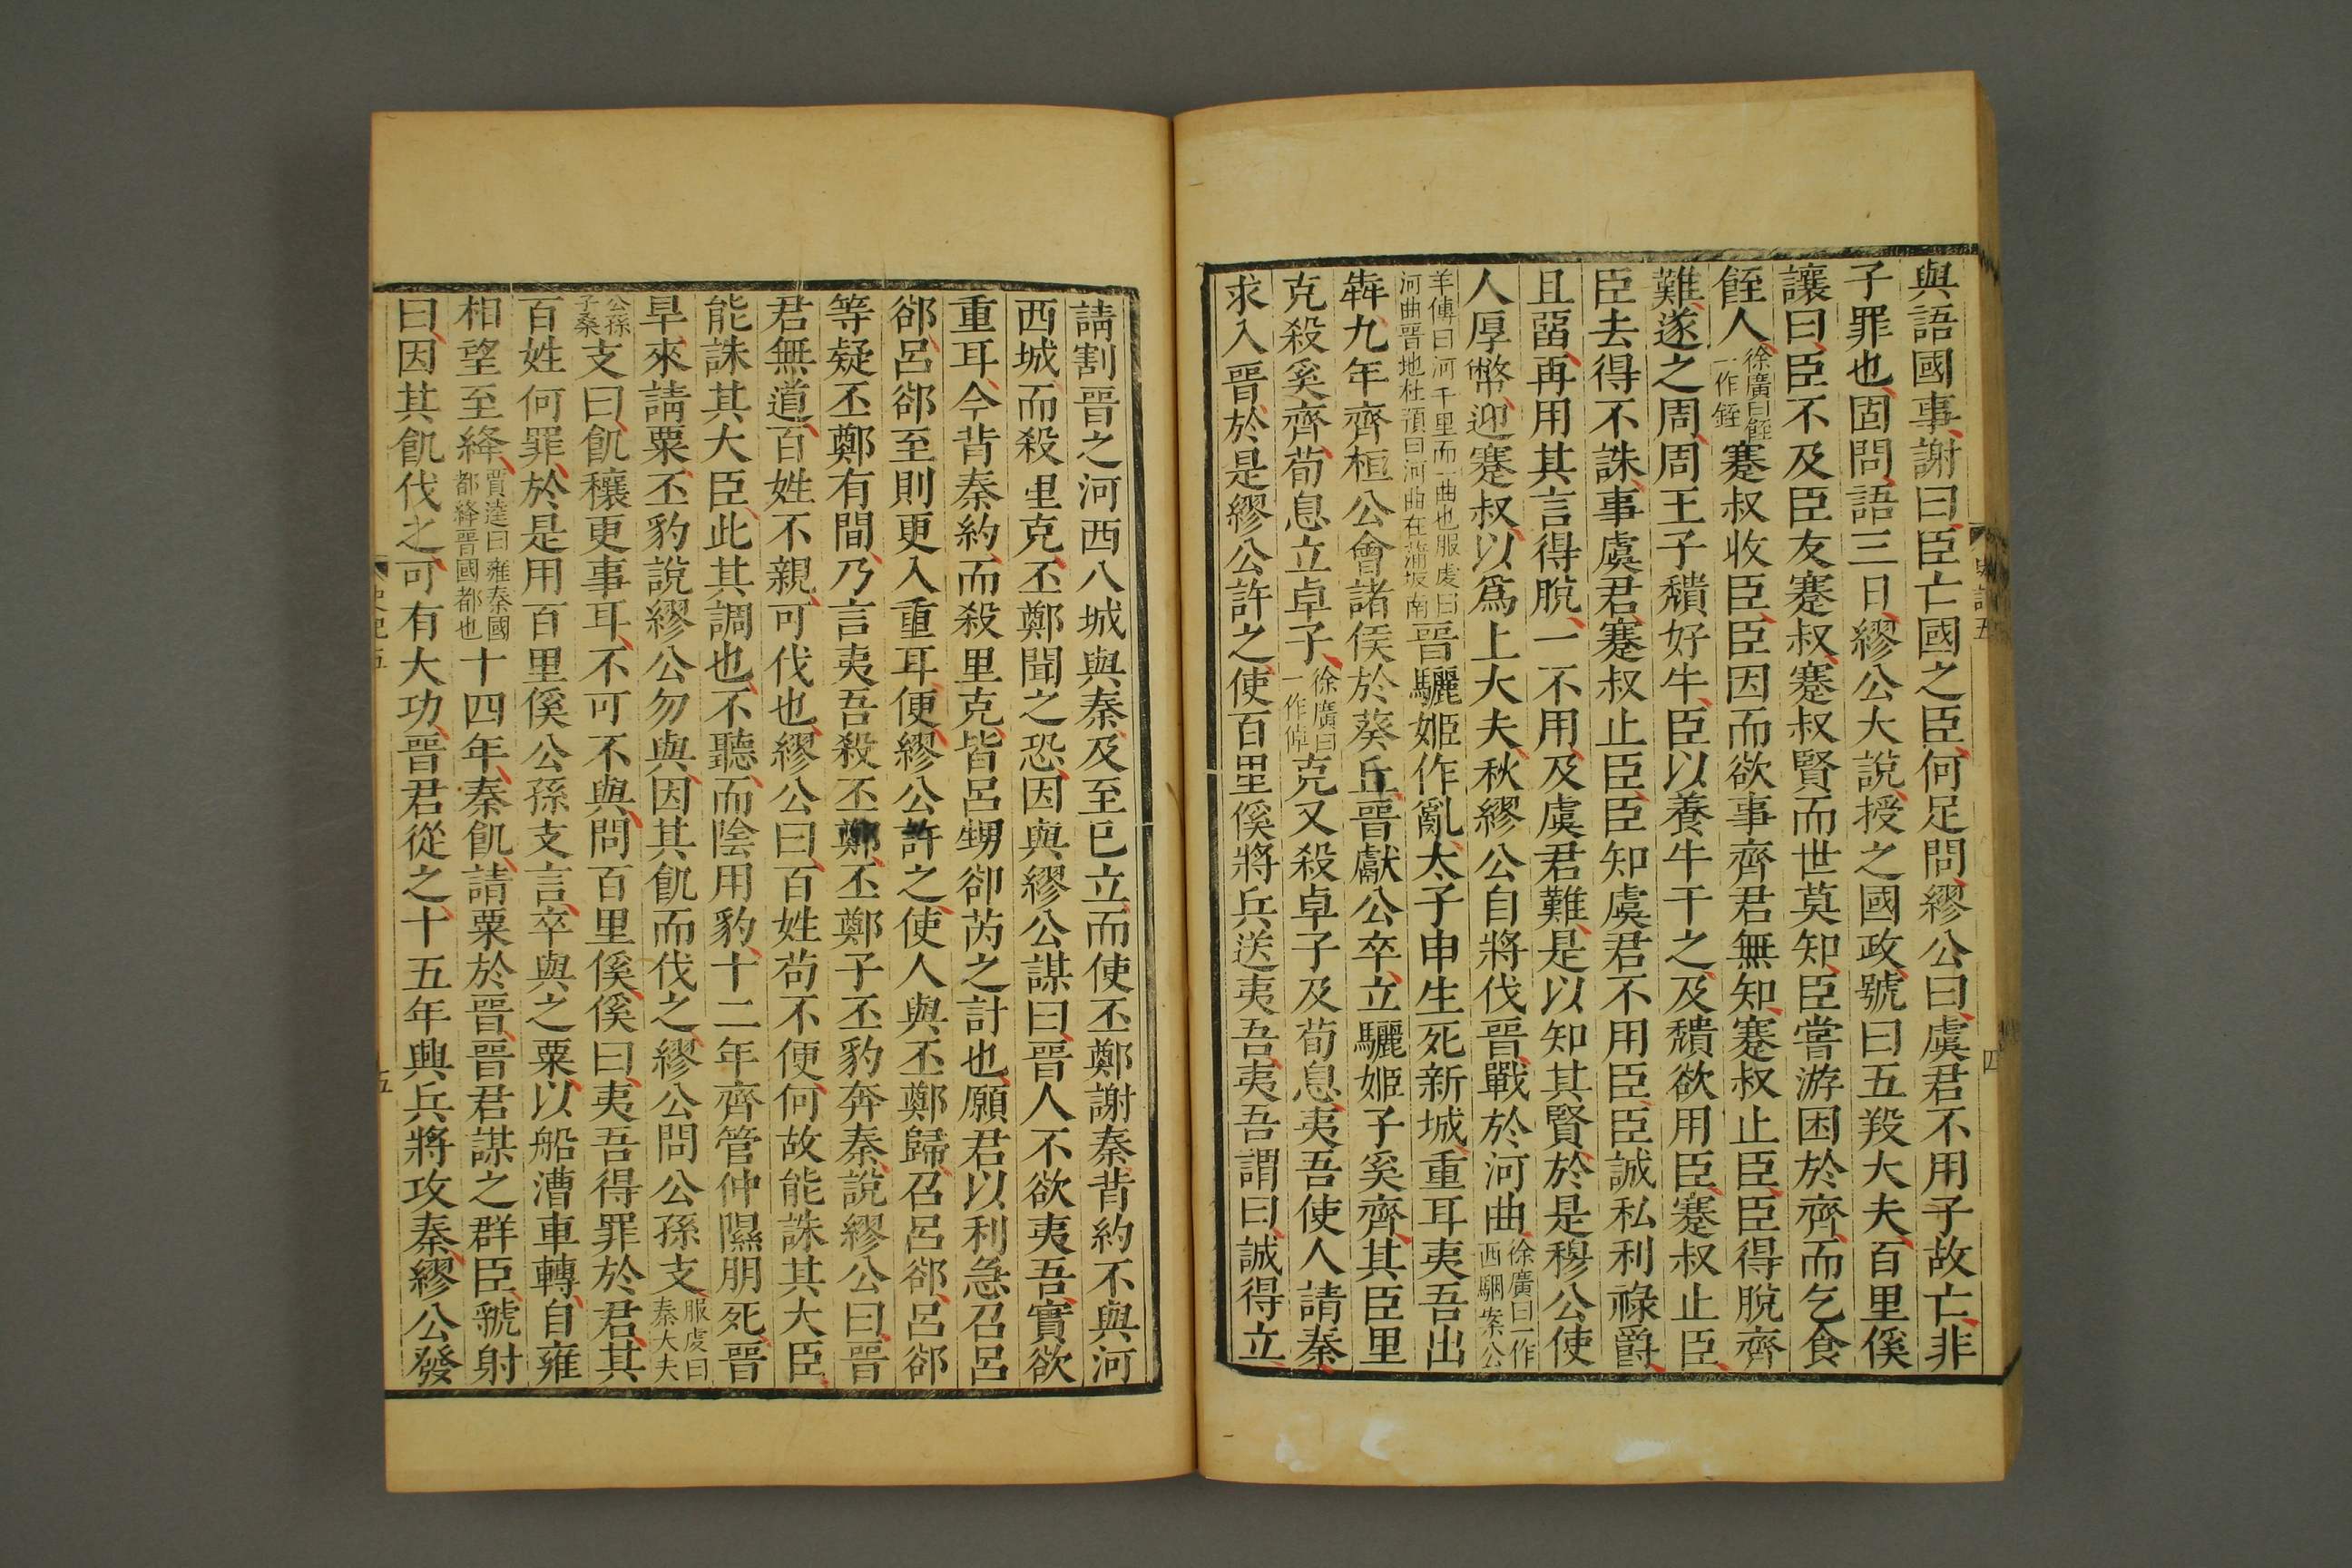 與語國事謝曰臣亡國之臣何足問繆公曰虞君不用子故亡非
子罪也固問語三日繆公大說授之國政號曰五羖大夫百里傒
讓曰臣不及臣友蹇叔蹇叔賢而世莫知臣嘗游困於齊而乞食
飷人徐廣曰飷一作銍蹇叔收臣臣因而欲事齊君無知蹇叔止臣臣得脫齊
難遂之周周王子穨好牛臣以養牛干之及穨欲用臣蹇叔止臣
臣去得不誅事虞君蹇叔止臣臣知虞君不用臣臣誠私利祿爵
且留再用其言得脫一不用及虞君難是以知其賢於是穆公使
人厚幣迎蹇叔以爲上大夫秋繆公自將伐晉戰於河曲徐廣曰一作西駰案公
羊傳曰河千里而一曲也服虔曰河曲晉地杜預曰河曲在蒲坂南晉驪姬作亂太子申生死新城重耳夷吾出
犇九年齊桓公會諸侯於葵丘晉獻公卒立驪姬子奚齊其臣里
克殺奚齊荀息立卓子徐廣曰一作倬克又殺卓子及荀息夷吾使人請秦
求入晉於是繆公許之使百里傒將兵送夷吾夷吾謂曰誠得立
史記五
四
請割晉之河西八城與秦及至已立而使丕鄭謝秦背約不與河
西城而殺里克丕鄭聞之恐因與繆公謀曰晉人不欲夷吾實欲
重耳今背秦約而殺里克皆呂甥郤芮之計也願君以利急召呂
郤呂郤至則更入重耳便繆公許之使人與丕鄭歸召呂郤呂郤
等疑丕鄭有間乃言夷吾殺丕鄭丕鄭子丕豹奔秦說繆公曰晉
君無道百姓不親可伐也繆公曰百姓苟不便何故能誅其大臣
能誅其大臣此其調也不聽而陰用豹十二年齊管仲隰朋死晉
旱來請粟丕豹說繆公勿與因其飢而伐之繆公問公孫支服虔曰秦大夫
公孫子桑支曰飢穰更事耳不可不與問百里傒傒曰夷吾得罪於君其
百姓何罪於是用百里傒公孫支言卒與之粟以船漕車轉自雍
相望至絳賈逵曰雍秦國都絳晉國都也十四年秦飢請粟於晉晉君謀之群臣虢射
曰因其飢伐之可有大功晉君從之十五年興兵將攻秦繆公發
史記五
五